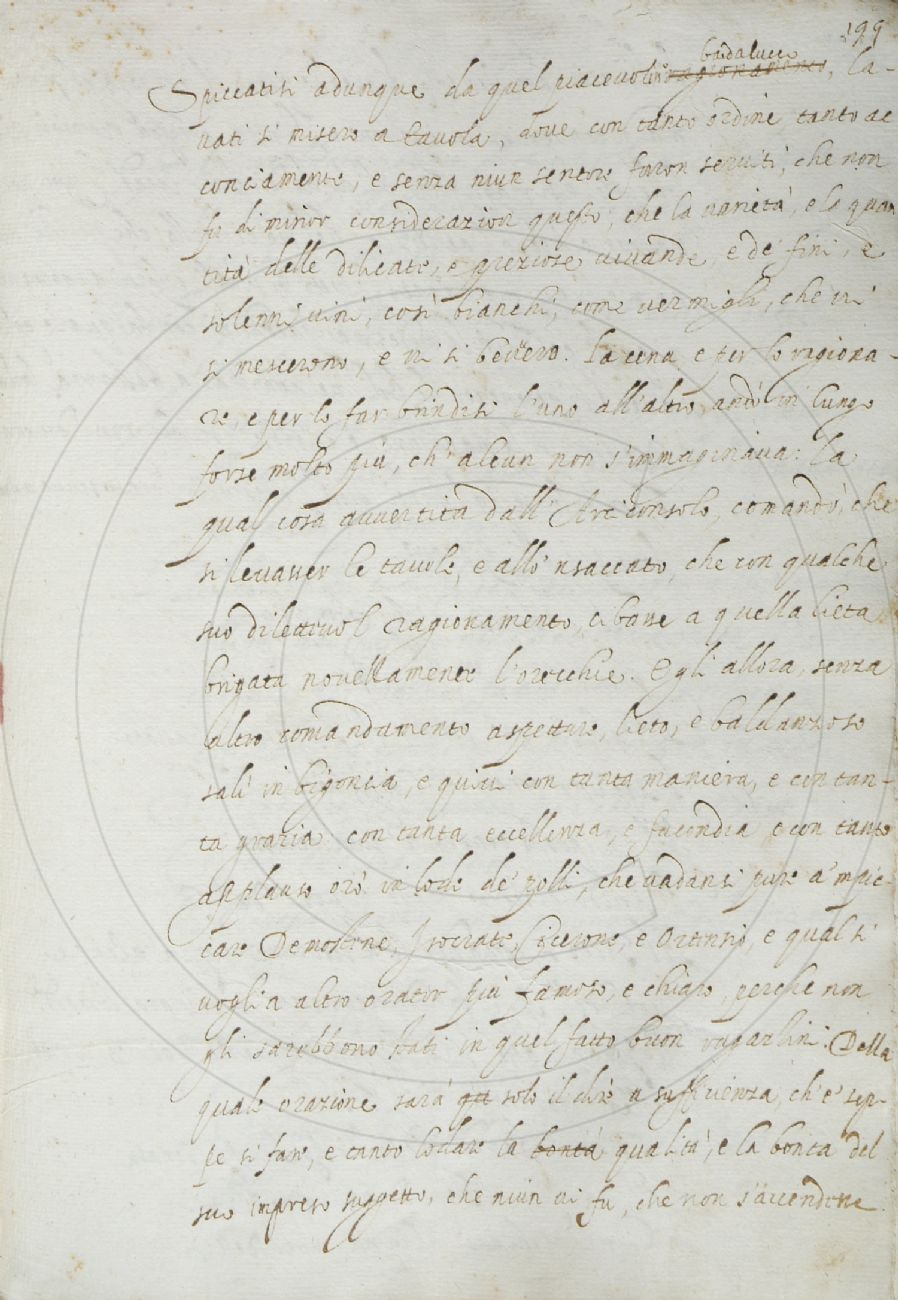 199
badalucco
Spiccatisi adunque da quel piacevolin ragionamento, la-
vati si misero a tavola, dove con tanto ordine tanto ac
conciamente, e senza niun sentore furon serviti, che non
fu di minor considerazion questo, che la varietà, e la quan
tità delle dilicate, e preziose vivande, e de' fini, e
solenni vini, così bianchi, come vermigli, che vi
si mescerono, e vi si bevvero. La cena e per lo ragiona-
re, e per lo far brindisi l'uno all'altro, andò in lungo
forse molto più, ch'alcun non s'immaginava: La
qual cosa avvertita dall'Arciconsolo, comandò, che
si levasser le tavole, e allo 'nsaccato, che con qualche
suo dilettevol ragionamento, cibasse a quella lieta
brigata novellamente l'orecchie. Egli allora, senza
altro comandamento aspettare, lieto, e baldanzoso
salì in bigoncia, e quivi con tanta maniera, e con tan-
ta grazia con tanta eccellenza, e facondia e con tanto
applauso orò in lode de' polli, che vadansi pure a 'mpic-
care Demostene, Isocrate, Cicerone, e Ortensio, e qual si
voglia altro orator più famoso, e chiaro, perche non
gli sarebbono stati in quel fatto buon ragazzini. Della
quale orazione sarà qui solo il dire a sufficienza, ch'e' sep-
pe sì fare, e tanto lodare la bontà qualità, e la bontà del
suo impreso suggetto, che niun vi fu, che non s'accendesse